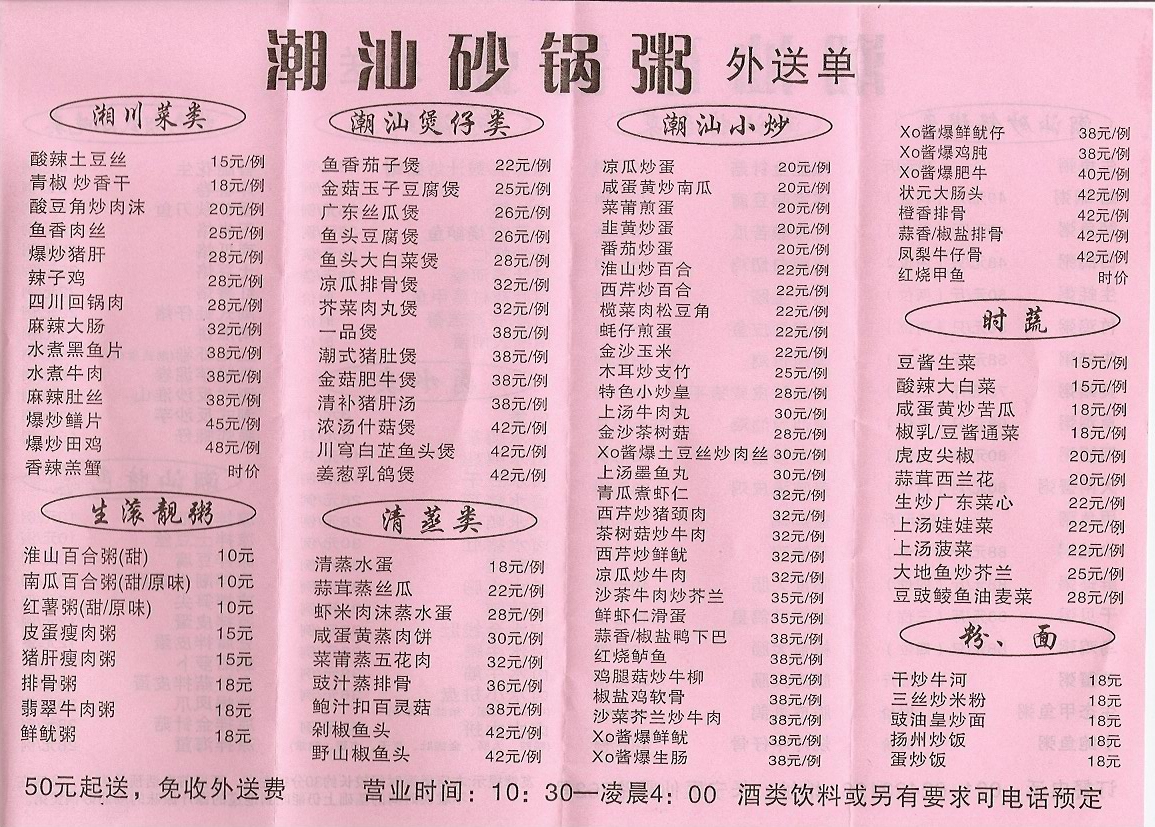 潮汕砂锅粥 外送单
湘川菜类
酸辣土豆丝 15元/例
青椒炒香干 18元/例
酸豆角炒肉沫 20元/例
鱼香肉丝 25元/例
爆炒猪肝 28元/例
辣子鸡 28元/例
四川回锅肉 28元/例
麻辣大肠 32元/例
水煮黑鱼片 38元/例
水煮牛肉 38元/例
麻辣肚丝 38元/例
爆炒鳝片 45元/例
爆炒田鸡 48元/例
香辣羔蟹 时价
生滚靓粥
淮山百合粥(甜) 10元
南瓜百合粥(甜/原味) 10元
红薯粥(甜/原味) 10元
皮蛋瘦肉粥 15元
猪肝瘦肉粥 15元
排骨粥 18元
翡翠牛肉粥 18元
鲜鱿粥 18元
潮汕煲仔类
鱼香茄子煲 22元/例
金菇玉子豆腐煲 25元/例
广东丝瓜煲 26元/例
鱼头豆腐煲 26元/例
鱼头大白菜煲 28元/例
凉瓜排骨煲 32元/例
芥菜肉丸煲 32元/例
一品煲 38元/例
潮式猪肚煲 38元/例
金菇肥牛煲 38元/例
清补猪肝汤 38元/例
浓汤什菇煲 42元/例
川穹白芷鱼头煲 42元/例
姜葱乳鸽煲 42元/例
清蒸类
清蒸水蛋 18元/例
蒜茸蒸丝瓜 22元/例
虾米肉沫蒸水蛋 28元/例
咸蛋黄蒸肉饼 30元/例
菜莆蒸五花肉 32元/例
豉汁蒸排骨 36元/例
鲍汁扣百灵菇 38元/例
剁椒鱼头 42元/例
野山椒鱼头 42元/例
潮汕小炒
凉瓜炒蛋 20元/例
咸蛋黄炒南瓜 20元/例
菜莆煎蛋 20元/例
韭黄炒蛋 20元/例
番茄炒蛋 20元/例
淮山炒百合 22元/例
西芹炒百合 22元/例
榄菜肉松豆角 22元/例
蚝仔煎蛋 22元/例
金沙玉米 22元/例
木耳炒支竹 25元/例
特色小炒皇 28元/例
上汤牛肉丸 30元/例
金沙茶树菇 28元/例
Xo酱爆土豆丝炒肉丝 30元/例
上汤墨鱼丸 30元/例
青瓜煮虾仁 32元/例
西芹炒猪颈肉 32元/例
茶树菇炒牛肉 32元/例
西芹炒鲜鱿 32元/例
凉瓜炒牛肉 32元/例
沙茶牛肉炒芥兰 35元/例
鲜虾仁滑蛋 35元/例
蒜香/椒盐鸭下巴 38元/例
红烧鲈鱼 38元/例
鸡腿菇炒牛柳 38元/例
椒盐鸡软骨 38元/例
沙菜芥兰炒牛肉 38元/例
Xo酱爆鲜鱿 38元/例
Xo酱爆生肠 38元/例
Xo酱爆鲜鱿仔 38元/例
Xo酱爆鸡肫 38元/例
Xo酱爆肥牛 40元/例
状元大肠头 42元/例
橙香排骨 42元/例
蒜香/椒盐排骨 42元/例
凤梨牛仔骨 42元/例
红烧甲鱼 时价
时蔬
豆酱生菜 15元/例
酸辣大白菜 15元/例
咸蛋黄炒苦瓜 18元/例
椒乳/豆酱通菜 18元/例
虎皮尖椒 20元/例
蒜茸西兰花 20元/例
生炒广东菜心 22元/例
上汤娃娃菜 22元/例
上汤菠菜 22元/例
大地鱼炒芥兰 25元/例
豆豉鲮鱼油麦菜 28元/例
粉、面
干炒牛河 18元
三丝炒米粉 18元
豉油皇炒面 18元
扬州炒饭 18元
蛋炒饭 18元
50元起送，免收外送费 营业时间：10：30—凌晨4：00 酒类饮料或另有要求可电话预定